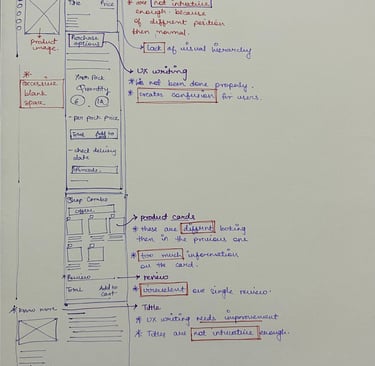 Title Price
* are not intuitive
enough. because
of diffrent position
then normal.
lack of visual hierarchy
Product
image.
Purchase
options
UX writing
not been done properly.
* creates confusion for users.
*
excessive
blank
space
Pack
Quantity
6 12
- per pack price
Total Add to
- check delivery
date
Pincode
Shop Combo
product cards
* these are diffrent looking
then in the previous one
* too much information
on the card.
* Review
review
Total Add to
cart
* irrevelent one single review.
* Know more
Title
* UX writing needs improvement
* Titles are not intuitive enough.